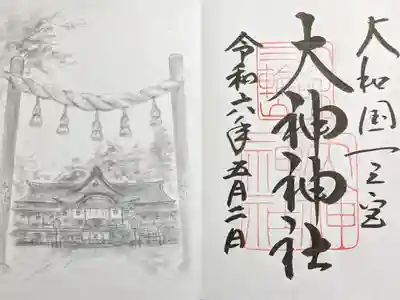 大和国一之宮
大神神社
令和六年五月二日
三輪